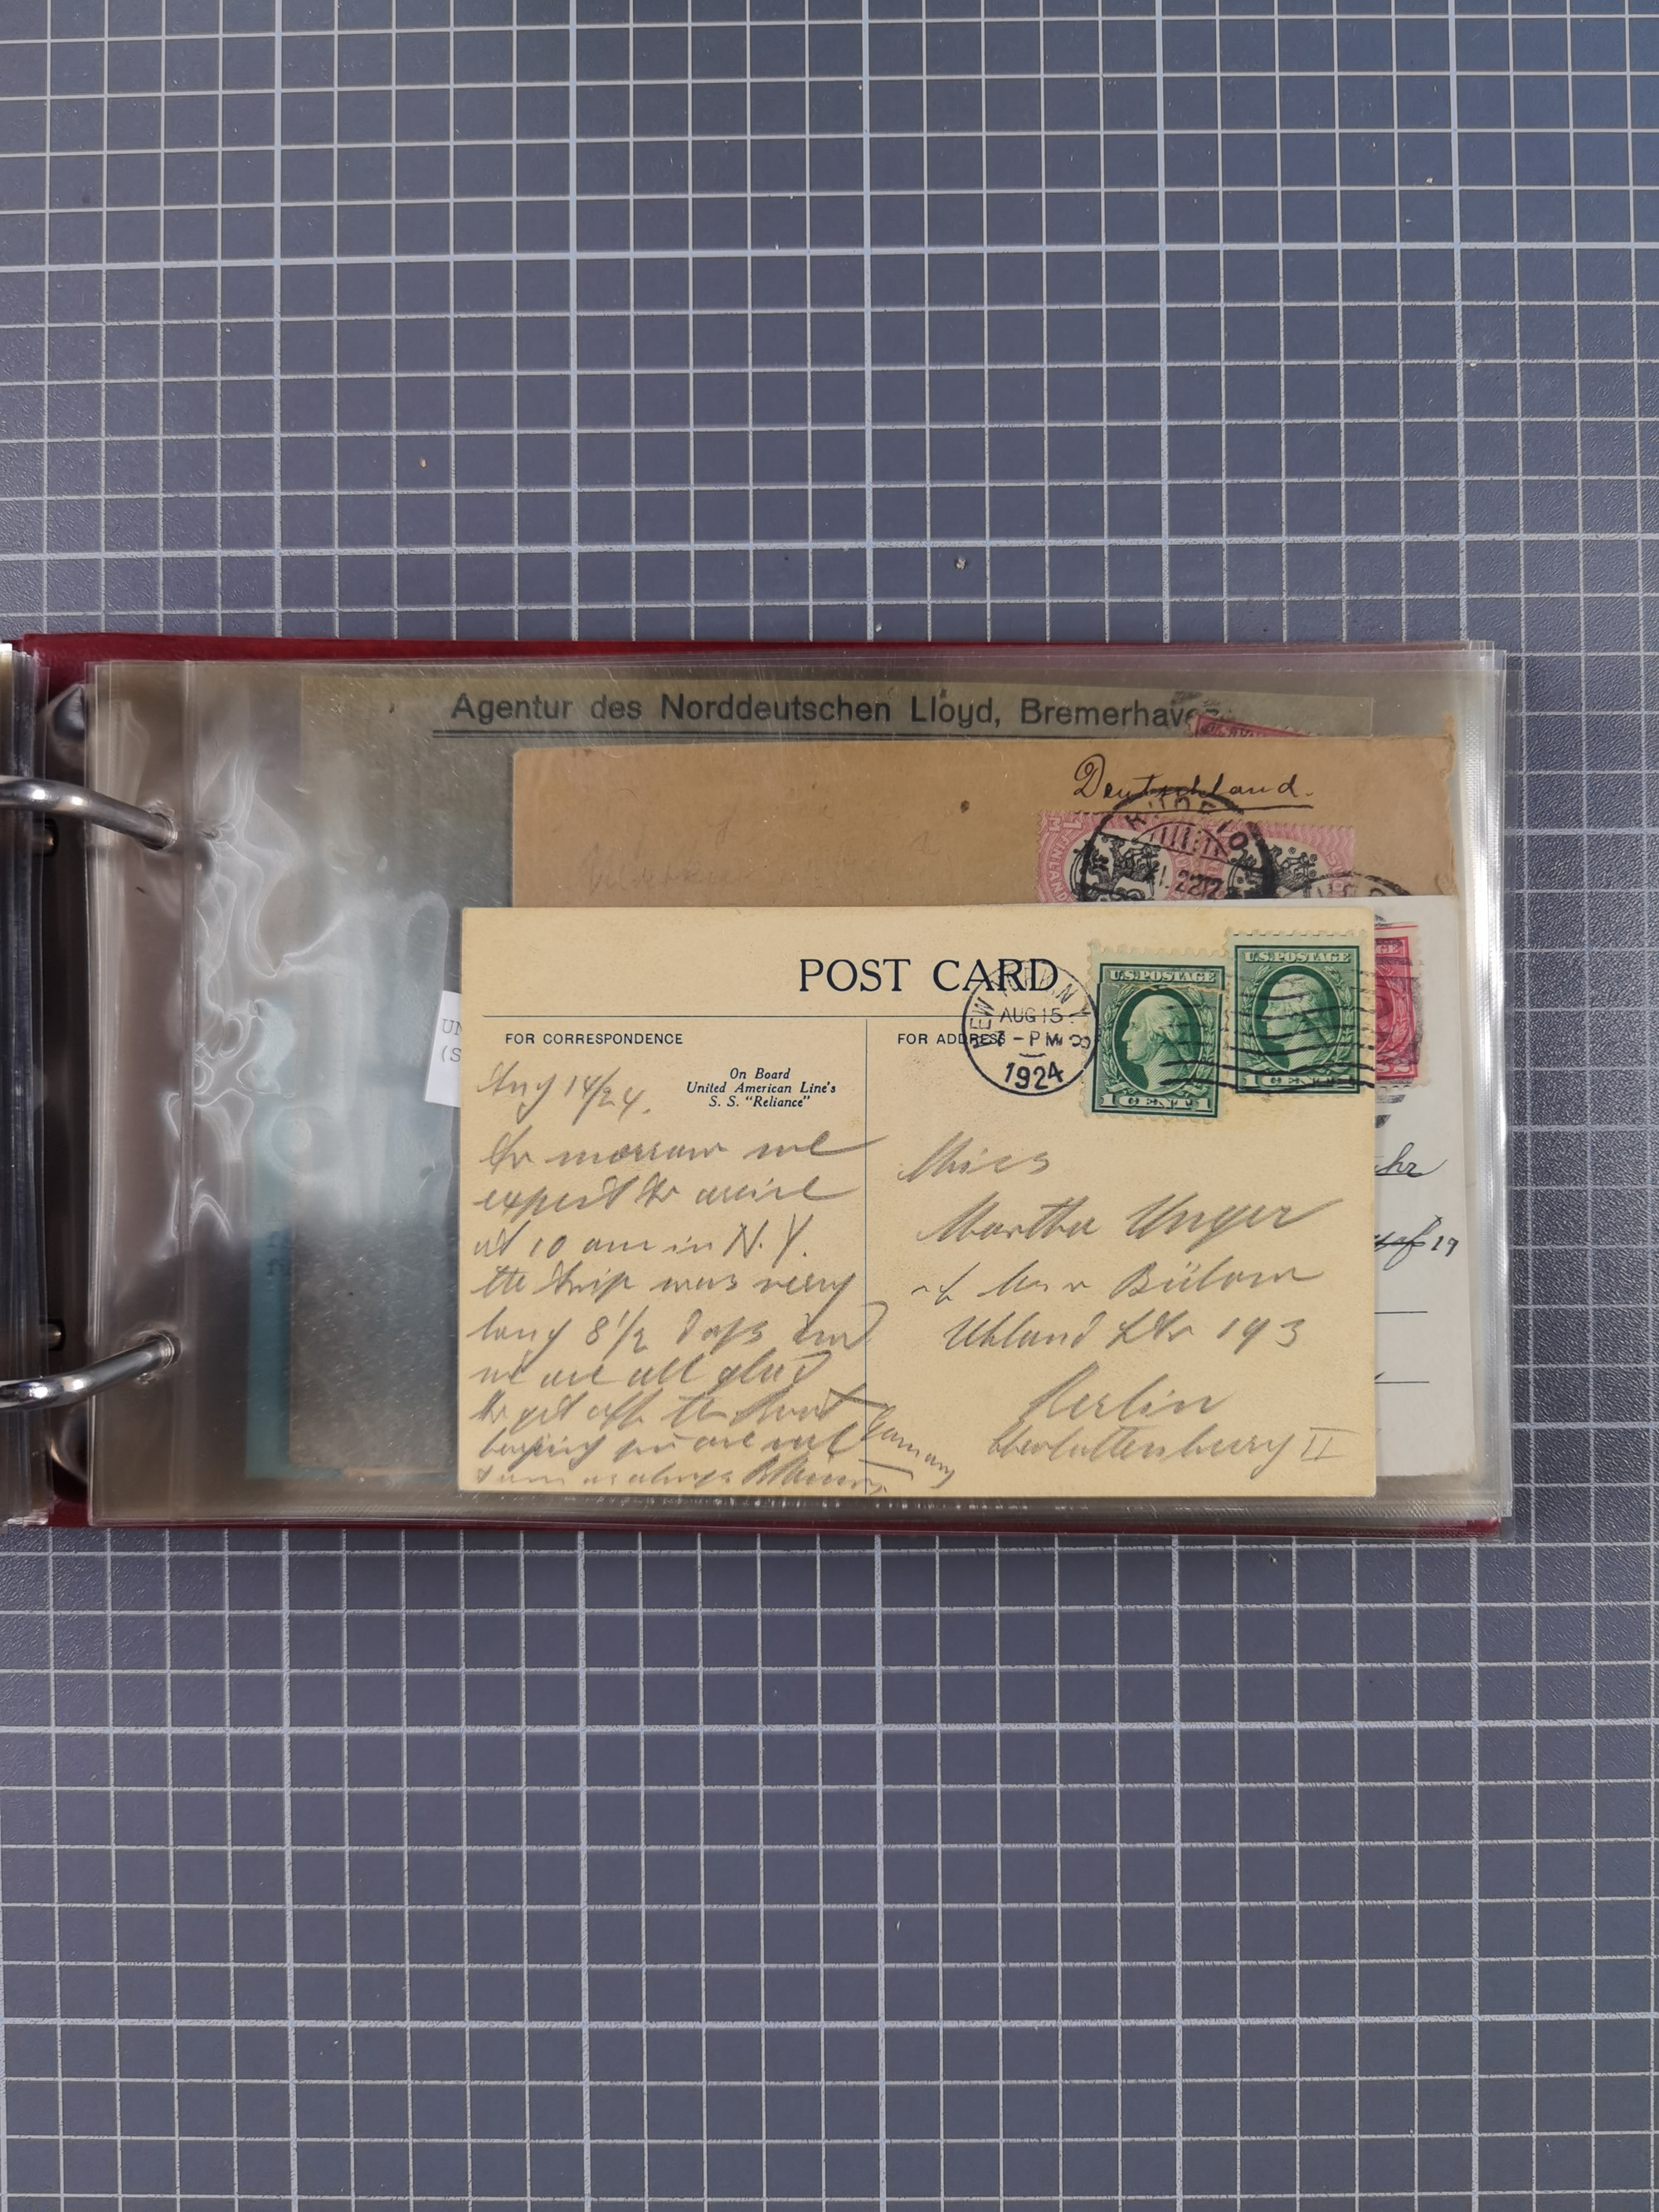 Agentur des Norddeutschen Lloyd, Bremerhaven
Deutschland.
POST CARD
FOR CORRESPONDENCE
FOR ADDRESS
NEW YORK, N.Y.
AUG 15
7-PM
1924
U.S. POSTAGE
1 CENT 1
U.S. POSTAGE
1 CENT 1
On Board
United American Line's
S. S. "Reliance"
Aug 14/24.
To morrow we
expect to arrive
at 10 am in N.Y.
the trip was very
long 8 1/2 days and
we are all glad
to get off the boat
hoping you are well
I am as always
Miss
Martha Unger
Bülow
Uhland Str 193
Berlin
Charlottenburg II
Germany
UN
(S